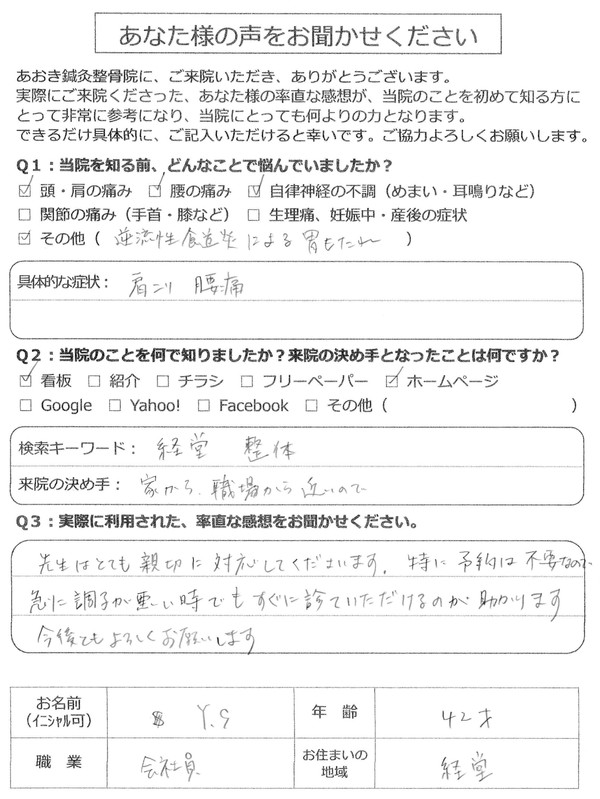 あなた様の声をお聞かせください
あおき鍼灸整骨院に、ご来院いただき、ありがとうございます。
実際にご来院くださった、あなた様の率直な感想が、当院のことを初めて知る方に
とって非常に参考になり、当院にとっても何よりの力となります。
できるだけ具体的に、ご記入いただけると幸いです。ご協力よろしくお願いします。
Q1：当院を知る前、どんなことで悩んでいましたか？
☑ 頭・肩の痛み ☑ 腰の痛み ☑ 自律神経の不調（めまい・耳鳴りなど）
□ 関節の痛み（手首・膝など） □ 生理痛、妊娠中・産後の症状
☑ その他（ 逆流性食道炎による胃もたれ ）
具体的な症状： 肩こり 腰痛
Q2：当院のことを何で知りましたか？来院の決め手となったことは何ですか？
☑ 看板 □ 紹介 □ チラシ □ フリーペーパー ☑ ホームページ
□ Google □ Yahoo! □ Facebook □ その他（ ）
検索キーワード： 経堂 整体
来院の決め手： 家から、職場から近いので
Q3：実際に利用された、率直な感想をお聞かせください。
先生はとても親切に対応してくださいます。特に予約は不要なので
急に調子が悪い時でもすぐに診ていただけるのが助かります
今後ともよろしくお願いします
お名前（イニシャル可） Y.S 年 齢 42才
職 業 会社員 お住まいの地域 経堂